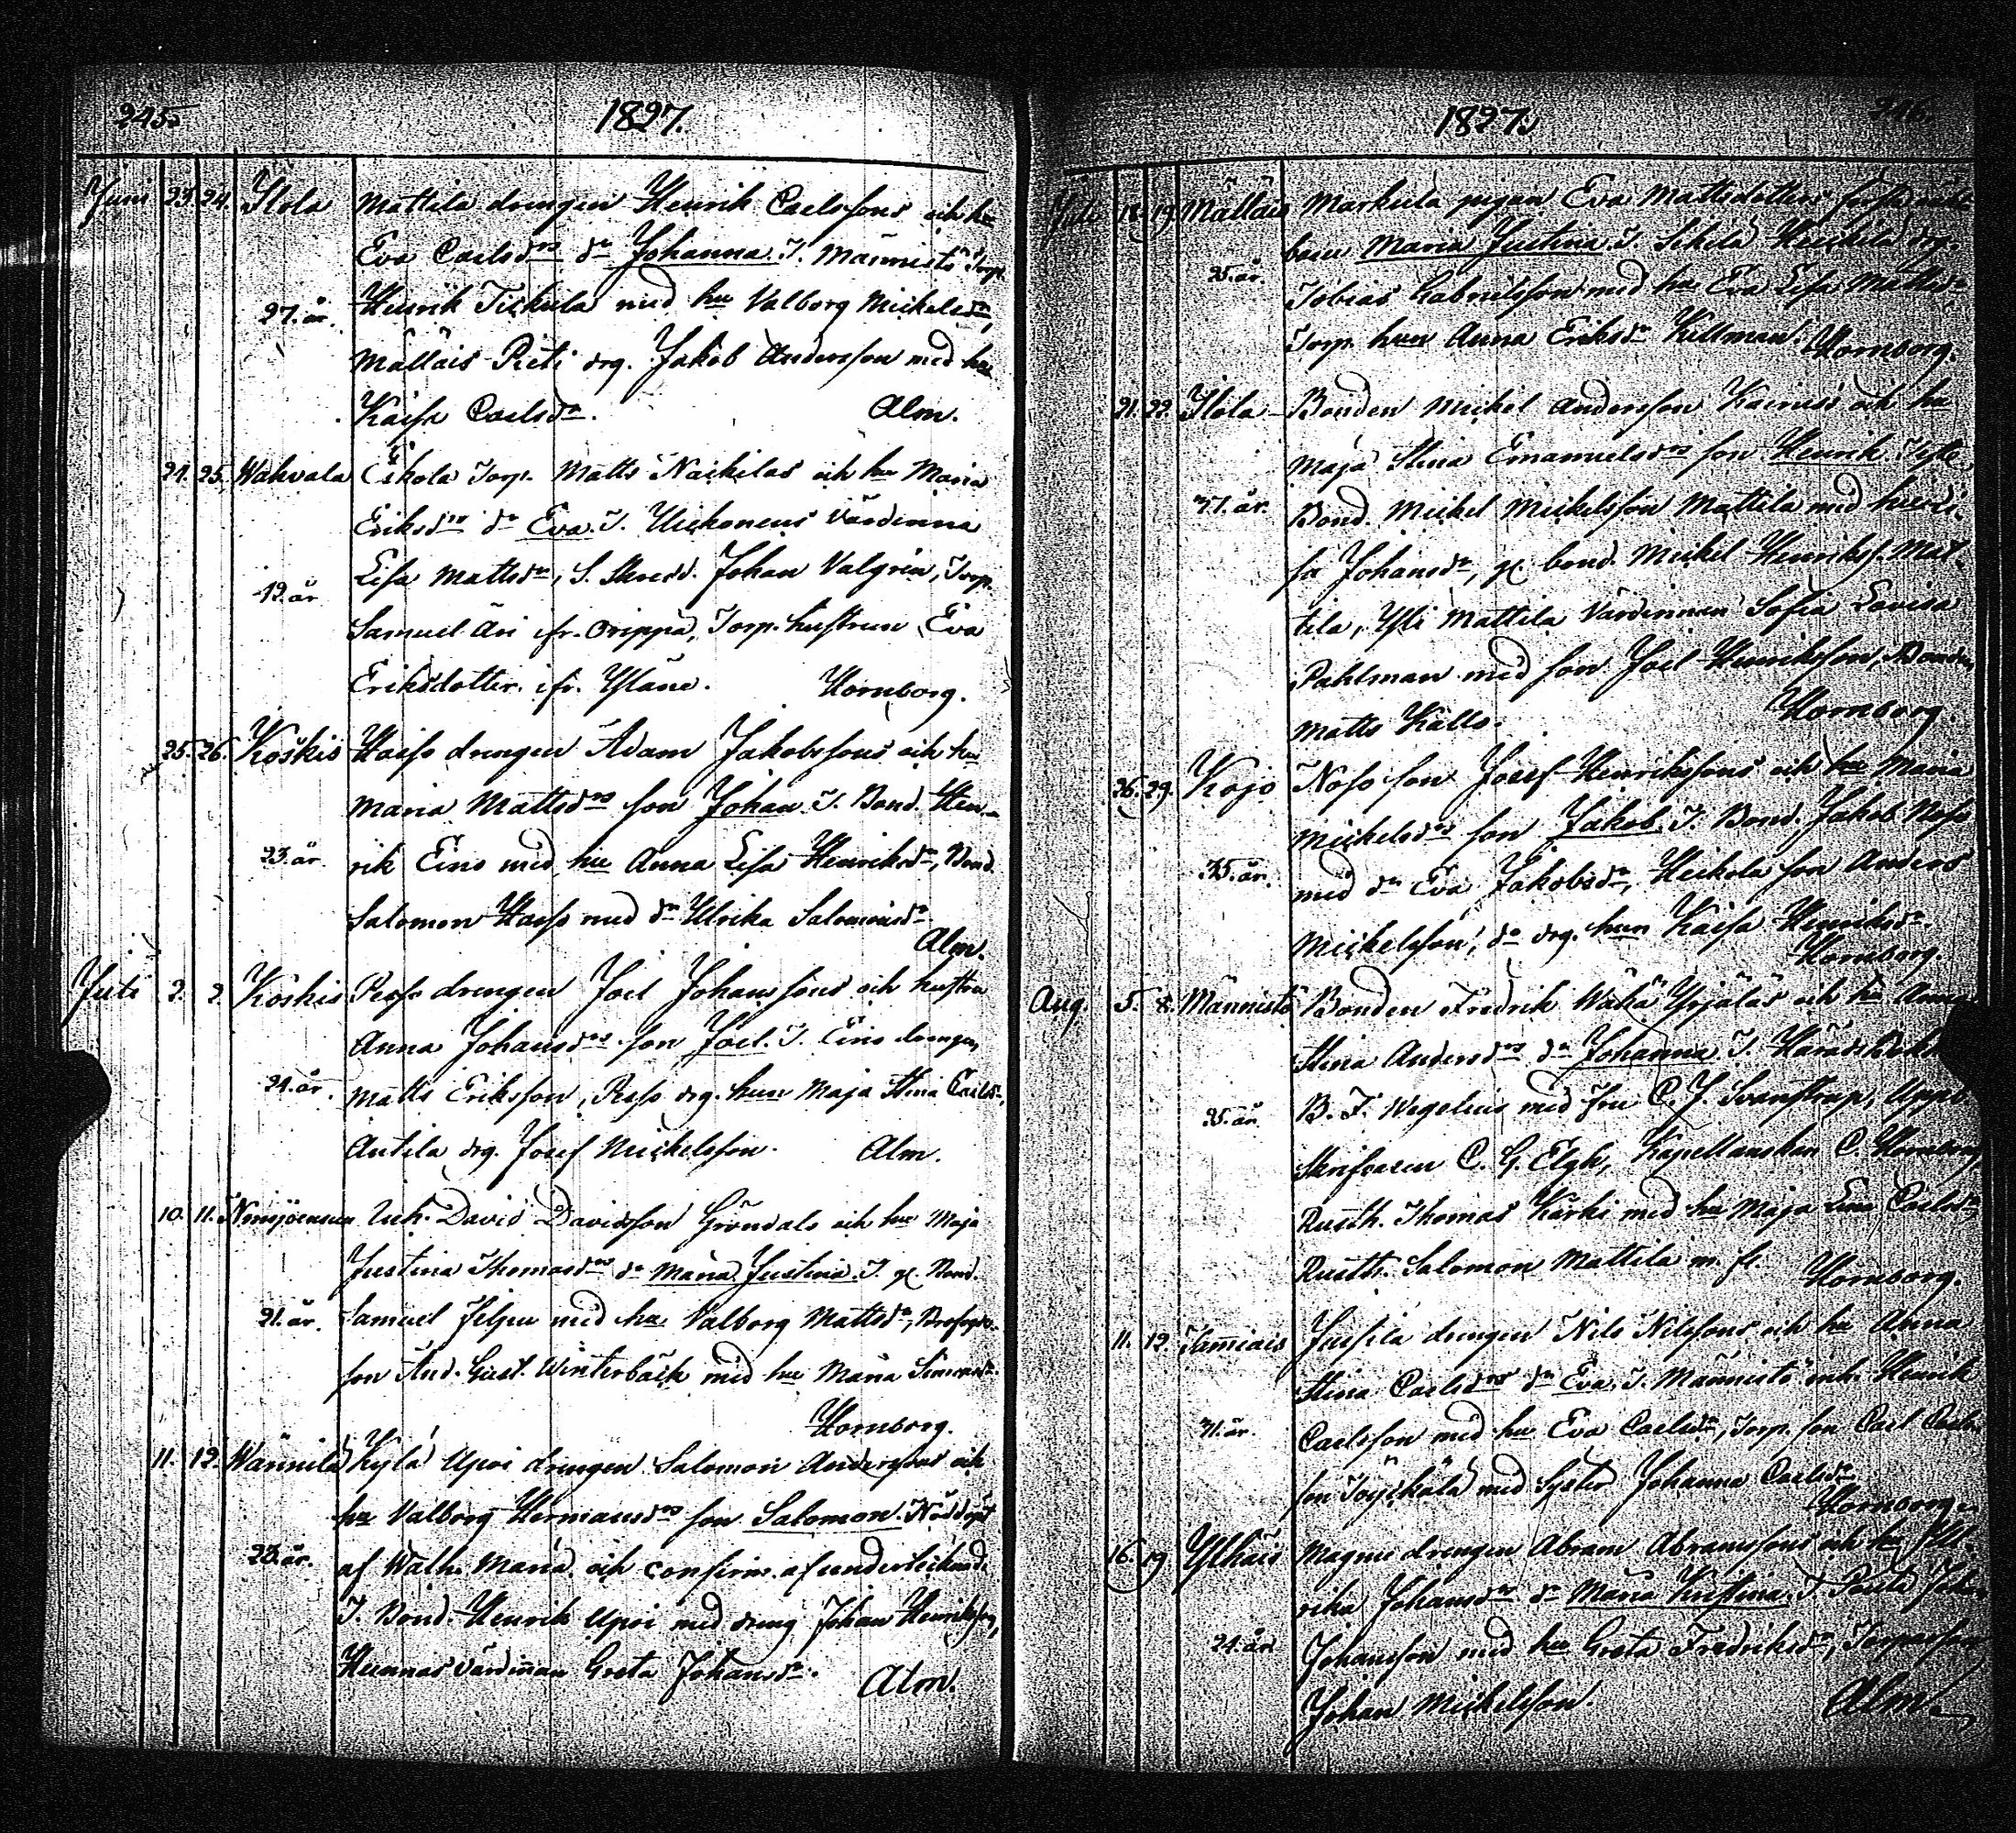 245.
1827.
Juni 23. 24. Ilola Mattila drengen Henrik Carlssons och hu
Eva Carlsdrs dr Johanna. T. Männistö Torp.
27. år. Henrik Tickula med hu Valborg Mickelsdr,
Mälläis Pieti drg. Jakob Andersson med hu
Kaisa Carlsdr. Alm.
24. 25. Wahvala Eskola Torp. Matts Nackilas och hu Maria
Eriksdrs dr Eva. T. Uckonens Värdinna
Lisa Mattsdr, S. Skredd. Johan Valgrén, Torp.
19. år Samuel Äri ifr. Orippä, Torp. hustrun Eva
Eriksdotter ifr. Yläne. Hornborg.
25. 26. Koskis Hasso drengen Adam Jakobssons och hu
Maria Mattsdrs son Johan. T. Bond. Hen-
23. år. rik Eins med hu Anna Lisa Henriksdr, Bond.
Salomon Hasso med dr Ulrika Salomonsdr.
Alm.
Juli 2. 2. Koskis Pesso drengen Joel Johanssons och hustru
Anna Johansdrs son Joel. T. Eins drengen
24. år. Matts Eriksson, Pesso drg. hun Maja Stina Carlsdr,
Antila drg. Josef Mickelsson. Alm.
10. 11. Inh. David Davidsson Gröndals och hu Maja
Justina Thomasdrs dr Maria Justina. T. gl. Bond.
21. år. Samuel Jelpu med hu Valborg Mattsdr,
son And. Gust. Winterbäck med hu Maria Simonsdr.
Hornborg.
11. 12. Wännilä Kylä Upoi drengen Salomon Anderssons och
hu Valborg Hermansdrs son Salomon. Nöddöpt
23. år. af Walb. Maria och confirm. af undertecknad.
T. Bond. Henrik Upoi med dreng Johan Henriksson,
Hunnas värdinnan Greta Johansdr. Alm.
246.
1827.
Juli 18. 19. Mälläis Markula pigan Eva Mattsdotters
barn Maria Justina. T. Sihilä Heickilä drg.
25. år. Tobias Gabrielsson med hu Eva Lisa Mattsdr
Torp. hun Anna Eriksdr Killman. Hornborg.
21. 22. Ilola Bonden Mickel Andersson Kairus och hu
Maja Stina Emanuelsdrs son Henrik.
37. år. Bond. Mickel Mickelsson Mattila med hu Li-
sa Johansdr, gl. bond. Mickel Henrikss. Mat-
tila, Ysti Mattila Värdinnan Sofia Lovisa
Pahlman med son Joel Henriksson, Bonden
Matts Källo. Hornborg.
26. 29. Kojo Noso son Josef Henrikssons och hu Maria
Mickelsdrs son Jakob. T. Bond. Jakob Noso
35. år. med dr Eva Jakobsdr, Heickola son Anders
Mickelsson, do drg. hun Kaisa Henriksdr.
Hornborg.
Aug. 5. 8. Männistö Bonden Fredrik Wähä Yrjäläs och hu Anna
Stina Andersdrs dr Johanna. T.
35. år. B. F. Wegelius med fru C. J. Svanström,
Skrifvaren C. G. Elgh, Kapellanskan C. Hornborg,
Rusth. Thomas Kärki med hu Maja Lena Carlsdr,
Rusth. Salomon Mattila m. fl. Hornborg.
11. 12. Tammiais Jussila drengen Nils Nilssons och hu Anna
Stina Carlsdrs dr Eva. T. Männistö inh. Henrik
31. år. Carlsson med hu Eva Carlsdr, Torp. son Carl Carls-
son Töyskälä med Syster Johanna Carlsdr
Hornborg.
16. 19. Ylhäis Magnu drengen Abram Abramssons och hu Ul-
rika Johansdrs dr Maria Kristina. T. Paula Johan
24. år Johansson med hu Greta Fredriksdr, Torpareson
Johan Mickelsson Alm.